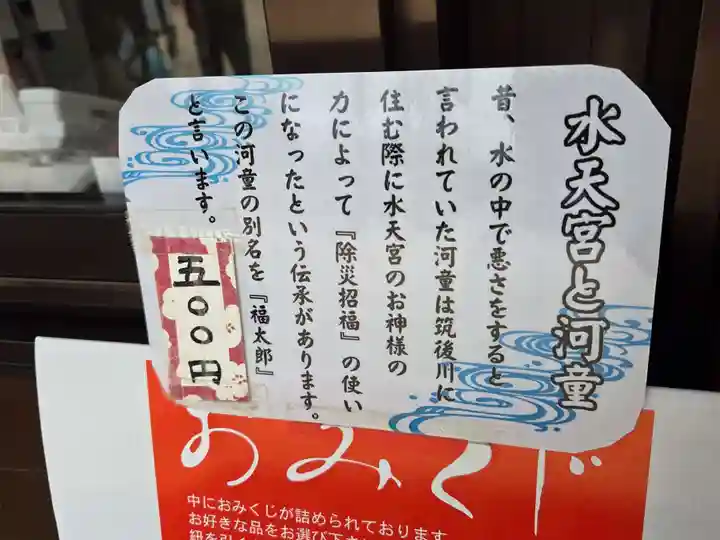 水天宮と河童
昔、水の中で悪さをすると
言われていた河童は筑後川に
住む際に水天宮のお神様の
力によって『除災招福』の使い
になったという伝承があります。
この河童の別名を『福太郎』
と言います。
五〇〇円
おみくじ
中におみくじが詰められております
お好きな品をお選び下さい
紐を引